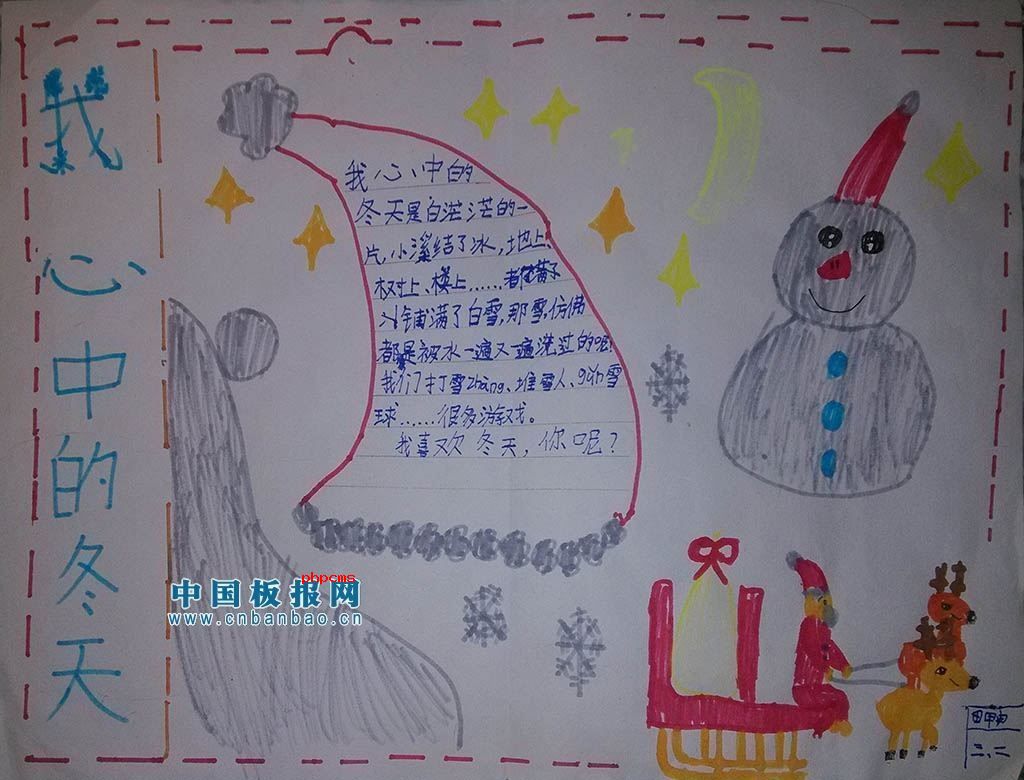 我心中的冬天
我心中的
冬天是白茫茫的一
片,小溪结了冰,地上、
树上、楼上……都
铺满了白雪,那雪,仿佛
都是被水一遍又一遍洗过的呢!
我们打雪zhàng、堆雪人、gǔn雪
球……很多游戏。
我喜欢冬天,你呢?
phpcms
中国板报网
www.cnbanbao.cn
田甲申
二、二